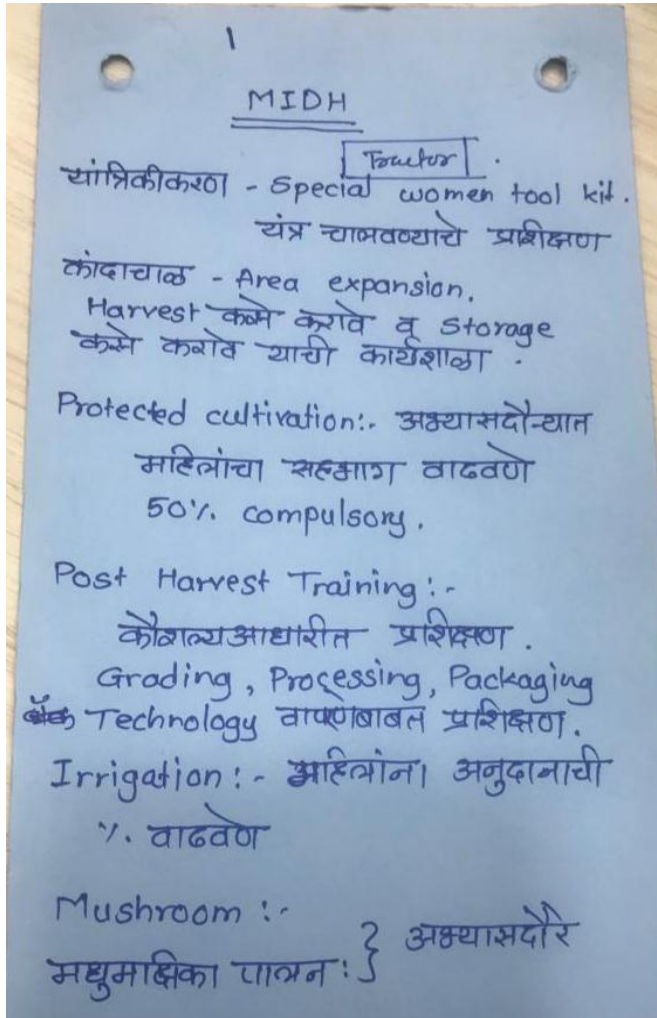 1
MIDH
Tractor .
यांत्रिकीकरण - Special women tool kit.
यंत्र चालवण्याचे प्रशिक्षण
कांदाचाळ - Area expansion.
Harvest कसे करावे व storage
कसे करावे याची कार्यशाळा .
Protected cultivation:- अभ्यासदौऱ्यात
महिलांचा सहभाग वाढवणे
50% compulsory.
Post Harvest Training :-
कौशल्यआधारीत प्रशिक्षण .
Grading, Processing, Packaging
Technology वापरणेबाबत प्रशिक्षण.
Irrigation :- महिलांना अनुदानाची
% वाढवणे
Mushroom :-
मधुमाक्षिका पालन : } अभ्यासदौरे